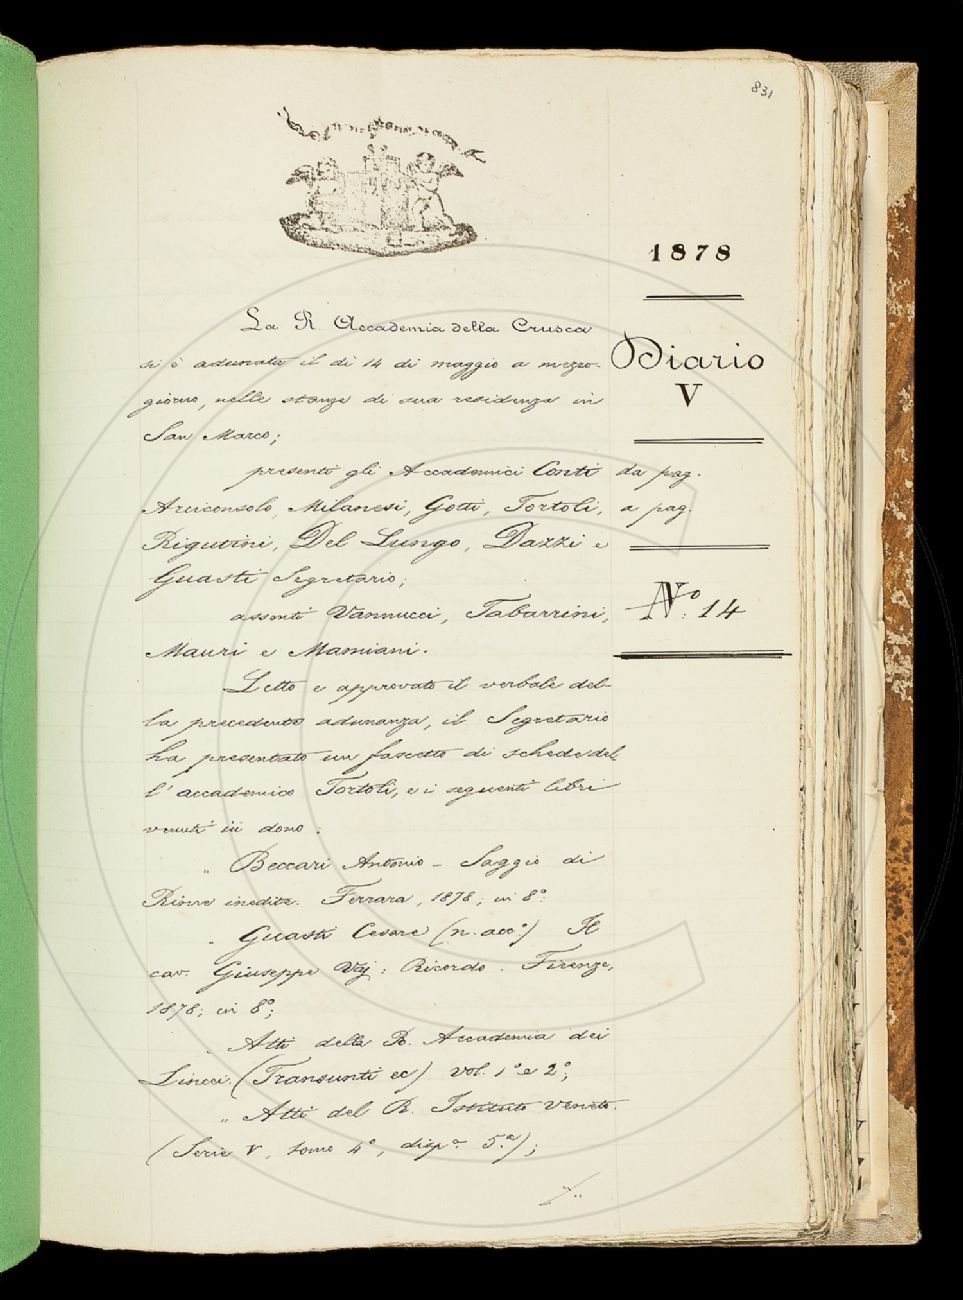 831
1878
Diario
V
da pag.
a pag.
N.º 14
La R. Accademia della Crusca
si è adunata il dì 14 di maggio a mezzo-
giorno, nelle stanze di sua residenza in
San Marco;
presenti gli Accademici Conti
Arciconsolo, Milanesi, Gotti, Tortoli,
Rigutini, Del Lungo, Dazzi e
Guasti Segretario;
assenti Vannucci, Tabarrini,
Mauri e Mamiani.
Letto e approvato il verbale del-
la precedente adunanza, il Segretario
ha presentato un fascetto di schede del
l'accademico Tortoli, e i seguenti libri
venuti in dono:
„ Beccari Antonio - Saggio di
Rime inedite. Ferrara, 1878; in 8º.
„ Guasti Cesare (n. acc.º) Il
cav. Giuseppe Vaj: Ricordo. Firenze,
1878; in 8º;
„ Atti della R. Accademia dei
Lincei. (Transunti ec) vol. 1º e 2º;
„ Atti del R. Istituto Veneto.
(Serie V, tomo 4º, disp.ª 5.ª);